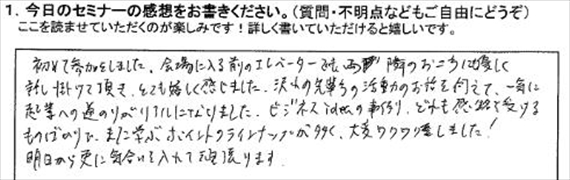 1. 今日のセミナーの感想をお書きください。(質問・不明点などもご自由にどうぞ)
ここを読ませていただくのが楽しみです!詳しく書いていただけると嬉しいです。
初めて参加をしました、会場に入る前のエレベーターでも 隣の
話し掛けて頂き、とても嬉しく感じました。沢山の先輩方の活動のお話を伺えて、一気に
起業への道のりがリアルになりました。ビジネスideaの事例、どれも感銘を受ける
ものばかりで、まだ学ぶポイントのラインナップが多く、大変ワクワク致しました!
明日から更に気合いを入れて頑張ります。